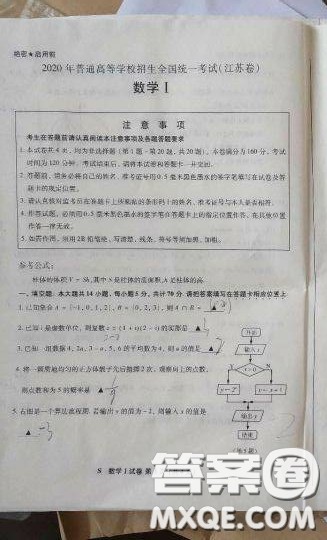 绝密★启用前
2020年普通高等学校招生全国统一考试(江苏卷)
数学Ⅰ
注意事项
考生在答题前请认真阅读本注意事项及各题答题要求
1.本试卷共4页,均为非选择题(第1题~第20题,共20题)。本卷满分为160分,考试
时间为120分钟。考试结束后,请将本试卷和答题卡一并交回。
2.答题前,请务必将自己的姓名、准考证号用0.5毫米黑色墨水的签字笔填写在试卷及答
题卡的规定位置。
3.请认真核对监考员在答题卡上所粘贴的条形码上的姓名、准考证号与本人是否相符。
4.作答试题,必须用0.5毫米黑色墨水的签字笔在答题卡上的指定位置作答,在其他位置
作答一律无效。
5.如需作图,须用2B铅笔绘、写清楚,线条、符号等须加黑、加粗。
参考公式:
柱体的体积V=Sh,其中S是柱体的底面积,h是柱体的高.
一、填空题:本大题共14小题,每小题5分,共计70分.请把答案填写在答题卡相应位置上.
1.已知集合A={-1,0,1,2},B={0,2,3},则A∩B= ▲
2.已知i是虚数单位,则复数z=(1+i)(2-i)的实部是 ▲ 3
3.已知一组数据4,2a,3-a,5,6的平均数为4,则a的值是 ▲ 2
4.将一颗质地均匀的正方体骰子先后抛掷2次,观察向上的点数,
则点数和为5的概率是 ▲
5.右图是一个算法流程图.若输出y的值为-2,则输入x的值是
▲ -3
开始
输入x
x>0
Y
N
输出y
结束
(第5题)
S 数学Ⅰ试卷 第
答案卷
MXQE.COM